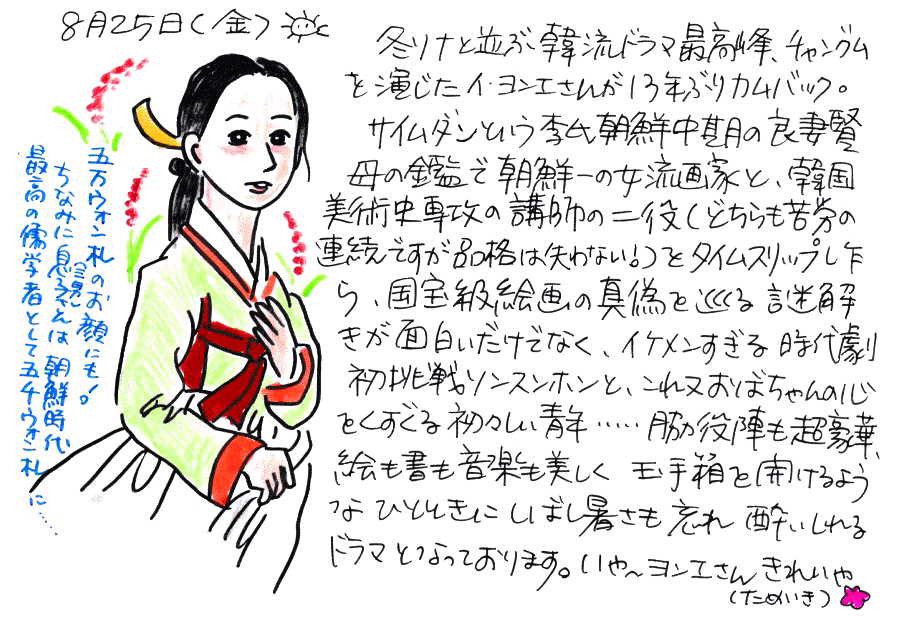 8月25日(金)
冬ソナと並ぶ韓流ドラマ最高峰、チャングム
を演じたイ・ヨンエさんが13年ぶりカムバック。
サイムダンという李氏朝鮮中期の良妻賢
母の鑑で朝鮮一の女流画家と、韓国
美術史専攻の講師の二役(どちらも苦労の
連続ですが品格は失わない!)をタイムスリップしなが
ら、国宝級絵画の真偽を巡る謎解
きが面白いだけでなく、イケメンすぎる時代劇
初挑戦ソンスンホンと、これ又おばちゃんの心
をくすぐる初々しい青年……脇役陣も超豪華、
絵も書も音楽も美しく玉手箱を開けるよう
なひとときにしばし暑さも忘れ酔いしれる
ドラマとなっております。いや〜ヨンエさんきれいや
(ためいき)
五万ウォン札のお顔にも!。
ちなみに息子さんは朝鮮時代
最高の儒学者として五千ウォン札に…